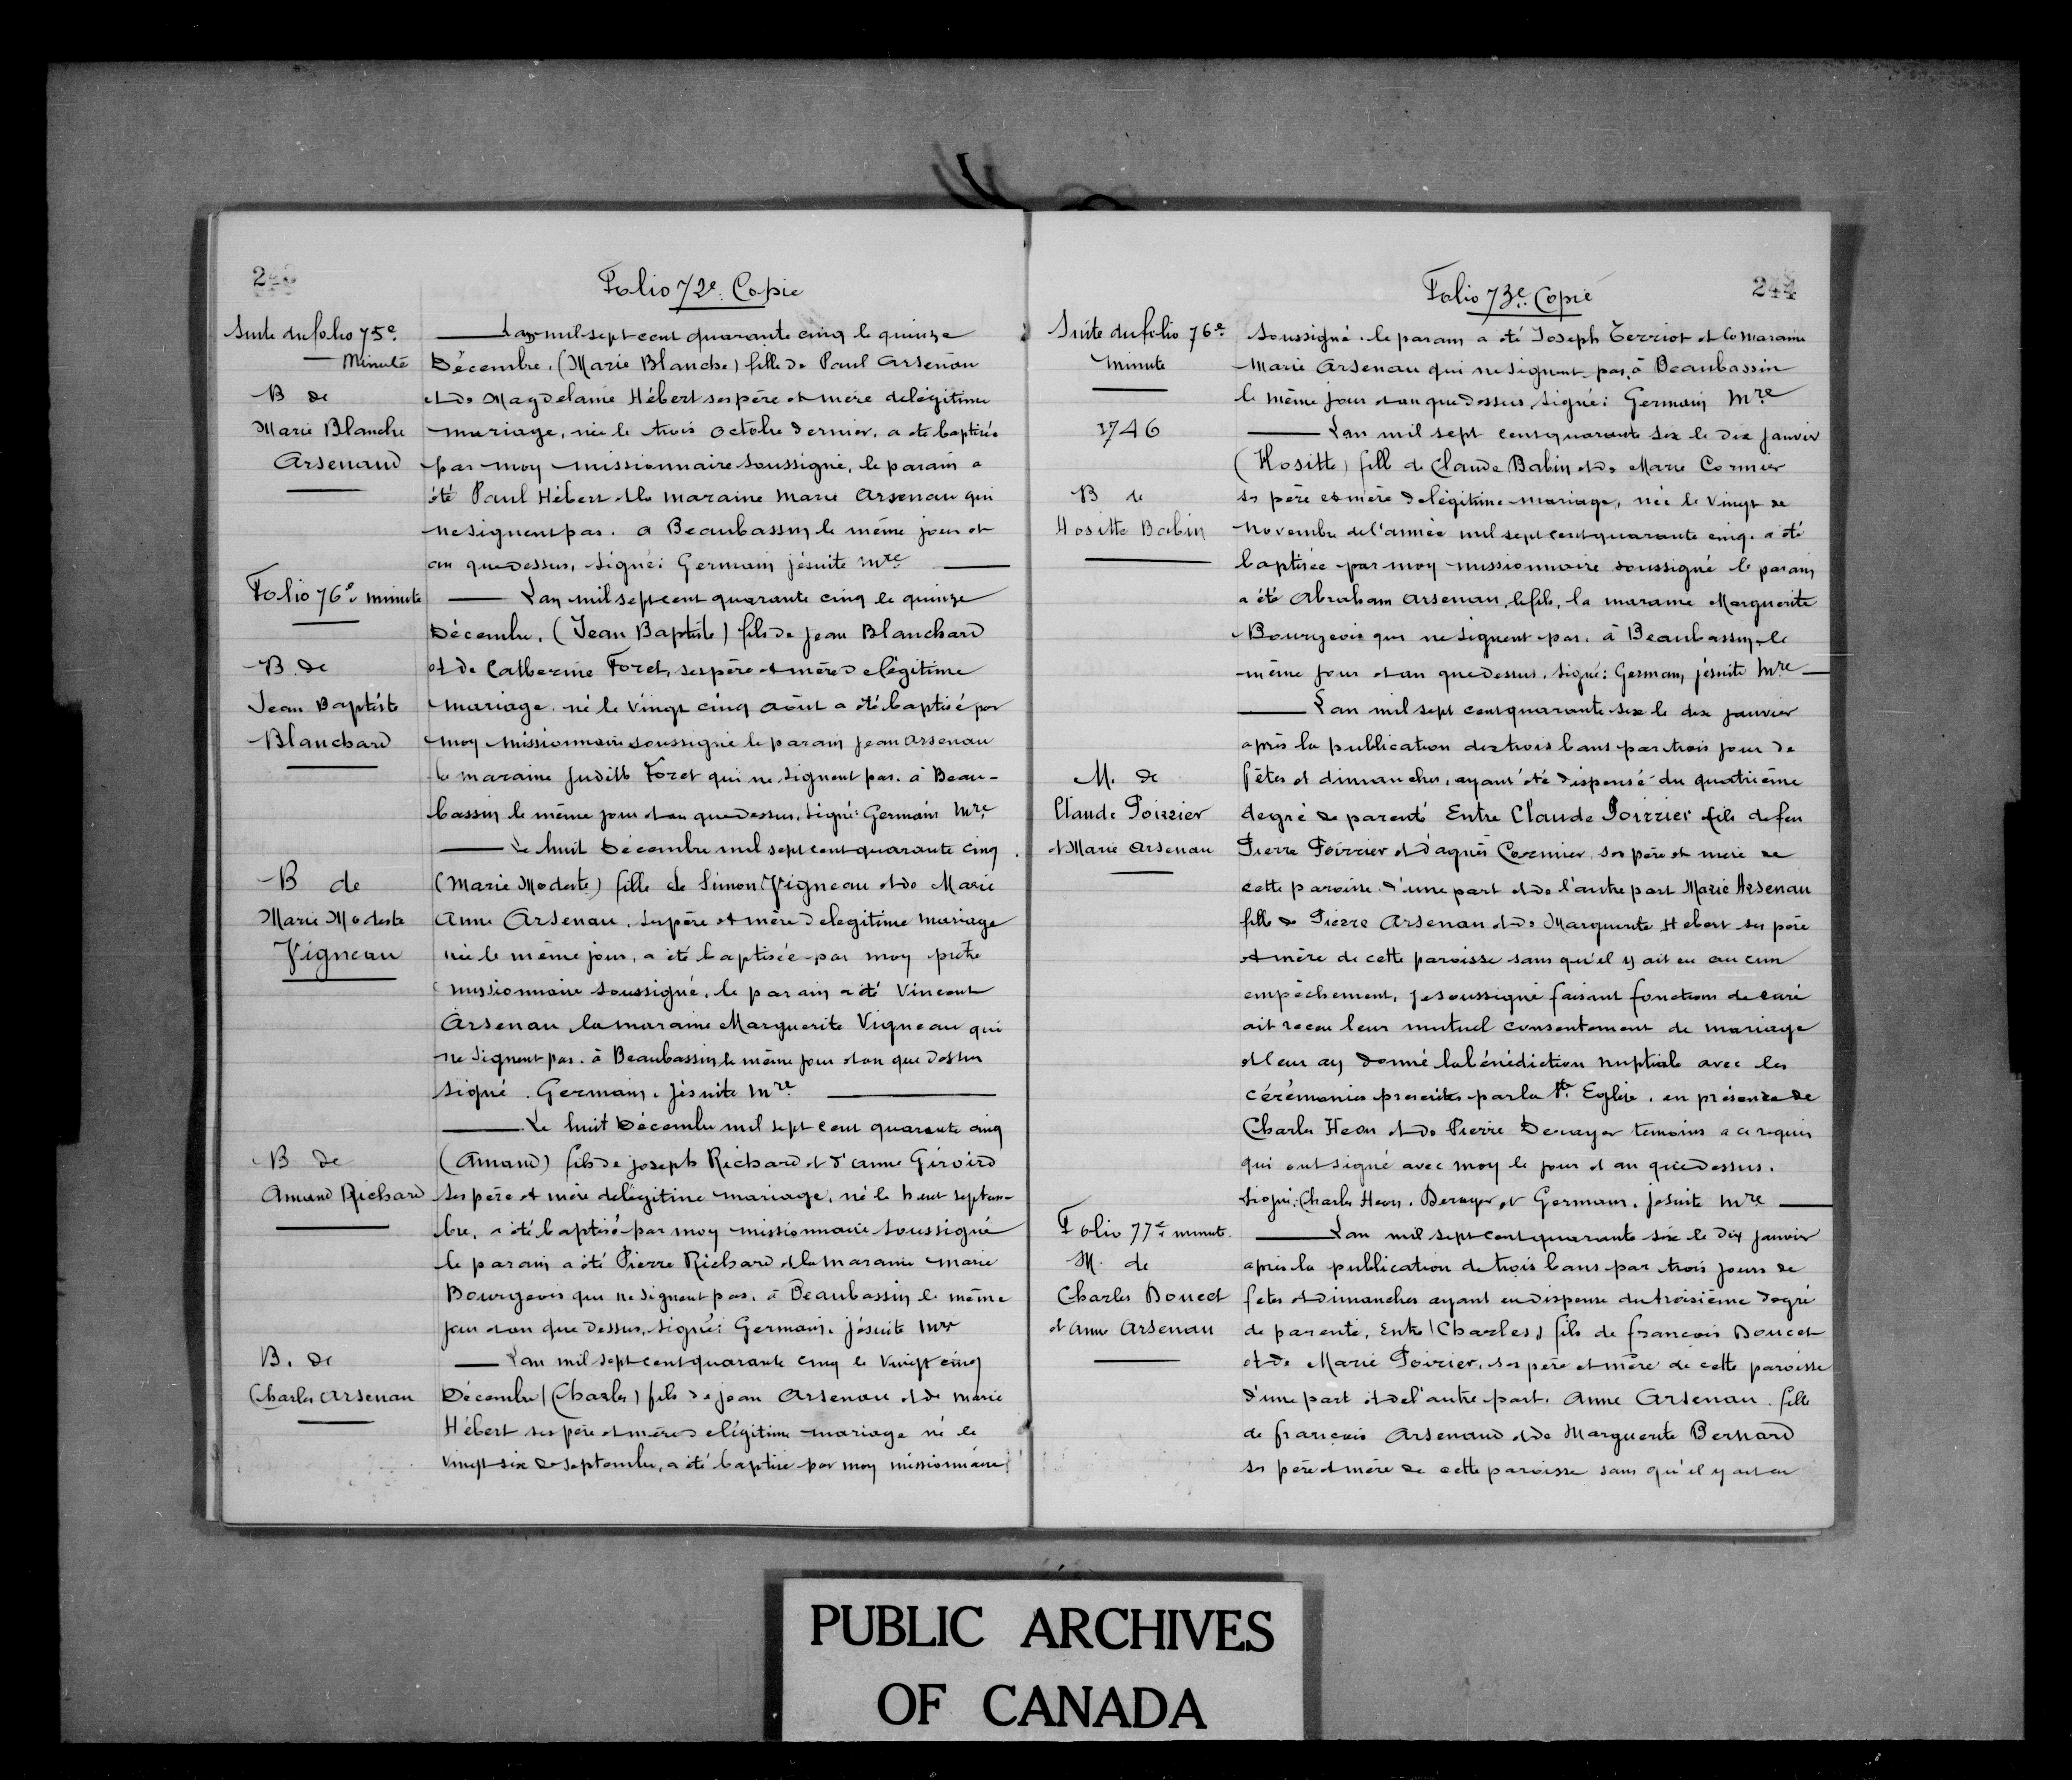 Folio 72e Copie
Suite du folio 75e
Minute
B de
Marie Blanche
Arsenaud
L'an mil sept cent quarante cinq le quinze
Décembre, (Marie Blanche) fille de Paul Arsenau
et de Magdelaine Hébert ses père et mère de légitime
mariage, née le trois octobre dernier, a été baptisée
par moy missionnaire soussigné, le parain a
été Paul Hébert et la maraine Marie Arsenau qui
ne signent pas. a Beaubassin le même jour et
an que dessus, signé: Germain jésuite mre
Folio 76e minute
B. de
Jean Baptiste
Blanchard
L'an mil sept cent quarante cinq le quinze
Décembre, (Jean Baptiste) fils de Jean Blanchard
et de Catherine Foret, ses père et mère de légitime
mariage. né le vingt cinq août a été baptisé par
moy missionnaire soussigné le parain Jean Arsenau
la maraine Judith Foret qui ne signent pas. à Beau-
bassin le même jour et an que dessus, signé: Germain mre
B de
Marie Modeste
Vigneau
Le huit Décembre mil sept cent quarante cinq
(Marie Modeste) fille de Simon Vigneau et de Marie
Anne Arsenau, ses père et mère de legitime mariage
née le même jour, a été baptisée par moy prêtre
missionnaire soussigné, le parain a été Vincent
Arsenau la maraine Marguerite Vigneau qui
ne signent pas. à Beaubassin le même jour et an que dessus
signé. Germain, Jésuite mre
B de
Amand Richard
Le huit Décembre mil sept cent quarante cinq
(Amand) fils de Joseph Richard et d'anne Giroird
ses père et mère de légitime mariage, né le huit septem-
bre, a été baptisé par moy missionnaire soussigné
le parain a été Pierre Richard et la maraine Marie
Bourgeois qui ne signent pas, à Beaubassin le même
jour et an que dessus, signé: Germain, jésuite mre
B. de
Charles Arsenau
L'an mil sept cent quarante cinq le vingt cinq
Décembre (Charles) fils de jean Arsenau et de Marie
Hébert ses père et mère de légitime mariage né le
vingt six de septembre, a été baptisé par moy missionnaire
244
Folio 73e Copie
Suite du folio 76e
minute
1746
soussigné. le parain a été Joseph Terriot et la maraine
Marie Arsenau qui ne signent pas, à Beaubassin
le même jour et an que dessus, signé: Germain mre
B de
Hositte Babin
L'an mil sept cent quarante six le dix janvier
(Hositte) fill de Claude Babin et de Marie Cormier
ses père et mère de légitime mariage, née le vingt de
Novembre de l'année mil sept cent quarante cinq. a été
baptisée par moy missionnaire soussigné le parain
a été Abraham Arsenau, le fils, la maraine Marguerite
Bourgeois qui ne signent pas. à Beaubassin, le
même jour et an que dessus, signé: Germain, jésuite mre
M. de
Claude Poirrier
et Marie Arsenau
L'an mil sept cent quarante six le dix janvier
après la publication des trois bans par trois jour de
fêtes et dimanches, ayant été dispensé du quatrième
degré de parenté Entre Claude Poirrier fils de feu
Pierre Poirrier et d'agnès Cormier, ses père et mère de
cette paroisse d'une part et de l'autre part Marie Arsenau
fille de Pierre Arsenau et de Marguerite Hebert ses père
et mère de cette paroisse sans qu'il y ait eu aucun
empêchement, je soussigné faisant fonction de curé
ait receu leur mutuel consentement de mariage
et leur ay donné la bénédiction nuptiale avec les
cérémonies prescrites par la Ste Eglise, en présence de
Charles Heon et de Pierre Derayer temoins a ce requis
qui ont signé avec moy le jour et an que dessus.
signé: Charles Heon, Derayer, et Germain, jésuite mre
Folio 77e minute
M. de
Charles Doucet
et Anne Arsenau
L'an mil sept cent quarante six le dix janvier
après la publication de trois bans par trois jours de
fetes et dimanches ayant eu dispense du troisième degré
de parenté, Entre (Charles) fils de françois Doucet
et de Marie Poirier, ses père et mère de cette paroisse
d'une part et de l'autre part, Anne Arsenau. fille
de françois Arsenaud et de Marguerite Bernard
ses père et mère de cette paroisse sans qu'il y ait eu
PUBLIC ARCHIVES
OF CANADA